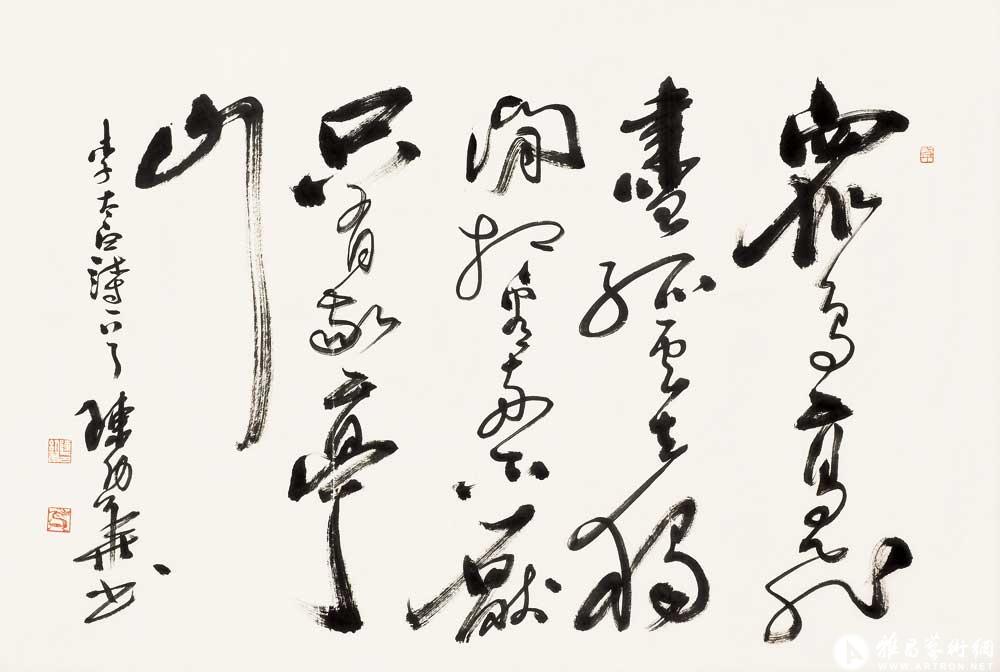 眾鳥高飛
盡孤雲去獨
閒相看兩不厭
只有敬亭
山
李太白詩一首
陳 華書
雅昌藝術網
WWW.ARTRON.NET